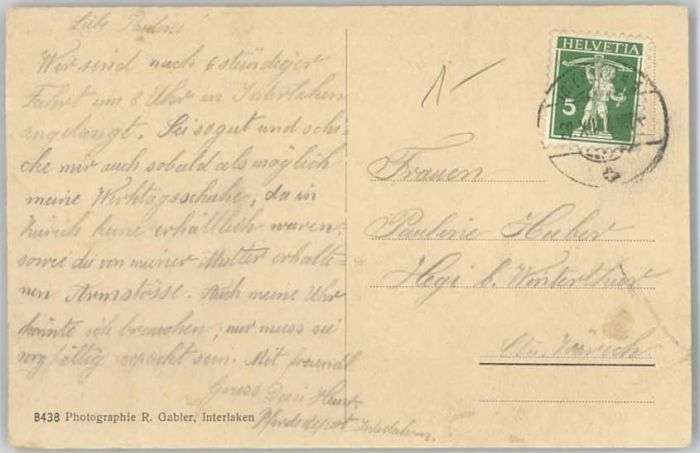 Liebe Pauline!
Wir sind nach 6 stündiger
Fahrt um 8 Uhr in Interlaken
angelangt. Sei so gut und schi-
cke mir auch sobald als möglich
meine Werktagsschuhe, da in
Zürich keine erhältlich waren,
sowie die von meiner Mutter erhalte-
nen Armstösse. Auch meine Uhr
könnte ich brauchen, nur muss sie
sorgfältig verpackt sein. Mit freundl
Gruss Dein
Pferdedepot Interlaken.
8438 Photographie R. Gabler, Interlaken
HELVETIA
5
Frauen
Pauline Huber
Hegi b. Winterthur
Ktn. Zürich.